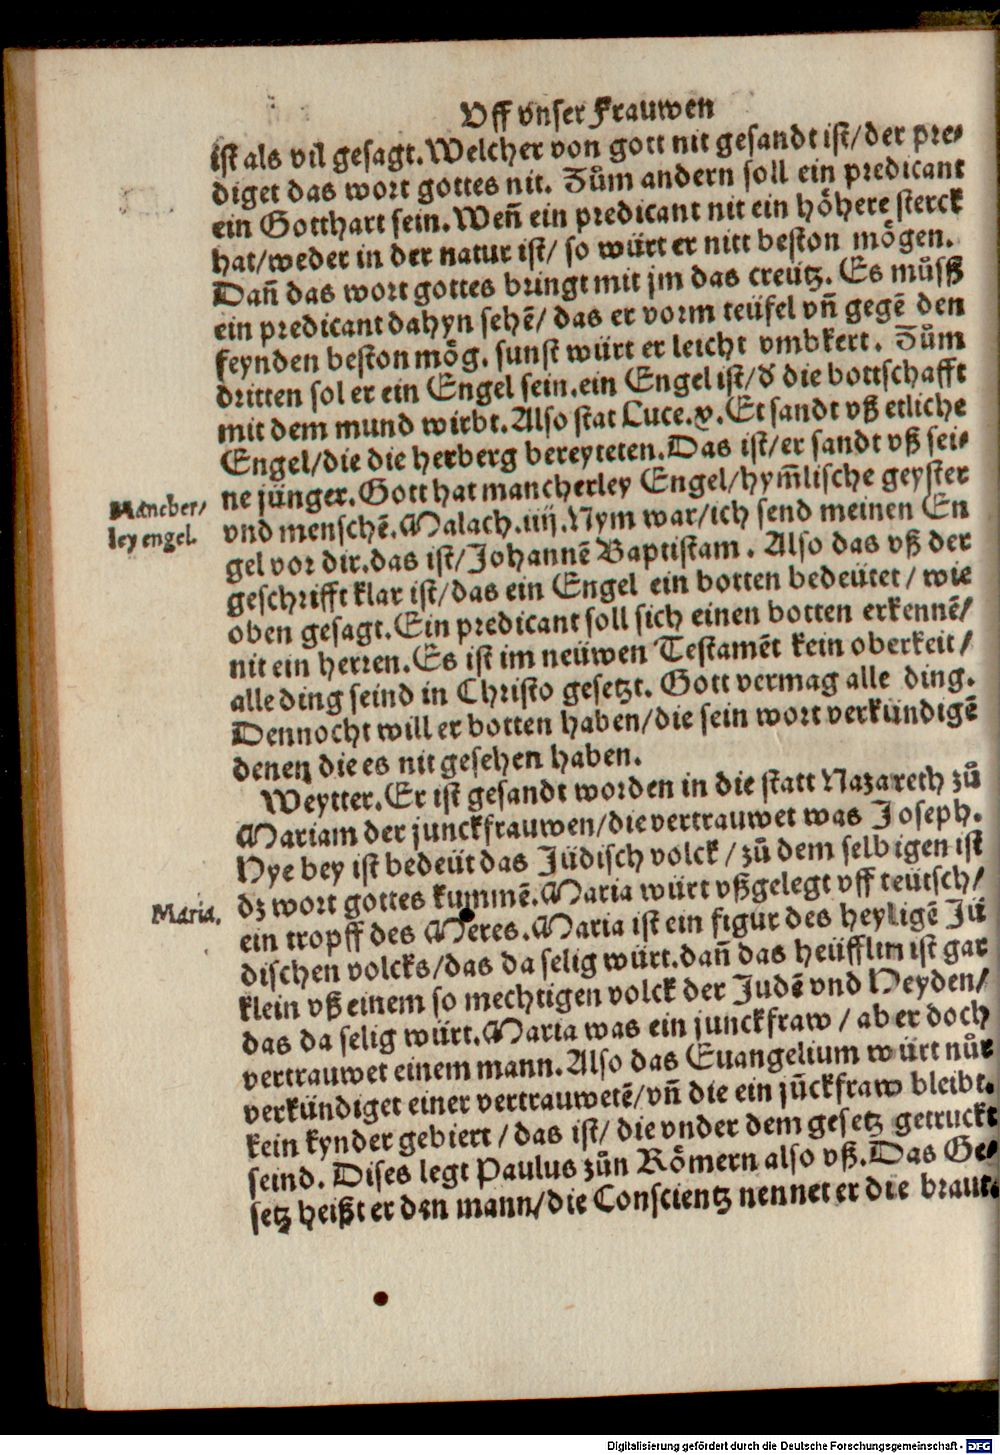 Vff vnser Frauwen
ist als vil gesagt. Welcher von gott nit gesandt ist/ der pre⸗
diget das wort gottes nit. Zům andern soll ein predicant
ein Gotthart sein. Weñ ein predicant nit ein hoͤhere sterck
hat/ weder in der natur ist/ so würt er nitt beston moͤgen.
Dañ das wort gottes bringt mit jm das creütz. Es můsß
ein predicant dahyn sehē/ das er vorm teüfel vñ gegē den
feynden beston moͤg. sunst würt er leicht vmbkert. Zům
dritten sol er ein Engel sein. ein Engel ist/ d̕ die bottschafft
mit dem mund wirbt. Also stat Luce.x. Et sandt vß etliche
Engel/ die die herberg bereyteten. Das ist/ er sandt vß sei⸗
ne jünger. Gott hat mancherley Engel/ hym̄lische geyster
Mancher/
ley engel.
vnd menschē. Malach.iiij. Nym war/ ich send meinen En
gel vor dir. das ist/ Johannē Baptistam. Also das vß der
geschrifft klar ist/ das ein Engel ein botten bedeütet/ wie
oben gesagt. Ein predicant soll sich einen botten erkennē/
nit ein herren. Es ist im neüwen Testamēt kein oberkeit/
alle ding seind in Christo gesetzt. Gott vermag alle ding.
Dennocht will er botten haben/ die sein wort verkündigē
denen die es nit gesehen haben.
Weytter. Er ist gesandt worden in die statt Nazareth zů
Mariam der junckfrauwen/ die vertrauwet was Joseph.
Hye bey ist bedeüt das Jüdisch volck/ zů dem selbigen ist
dz wort gottes kummē. Maria würt vßgelegt vff teütsch/
Maria.
ein tropff des Meres. Maria ist ein figur des heyligē Jü
dischen volcks/ das da selig würt. dañ das heüfflin ist gar
klein vß einem so mechtigen volck der Judē vnd Heyden/
das da selig würt. Maria was ein junckfraw/ aber doch
vertrauwet einem mann. Also das Euangelium würt nůr
verkündiget einer vertrauwetē/ vñ die ein jūckfraw bleibt.
kein kynder gebiert/ das ist/ die vnder dem gesetz getruckt
seind. Dises legt Paulus zůn Roͤmern also vß. Das Ge⸗
setz heißt er den mann/ die Conscientz nennet er die braut.
Digitalisierung gefördert durch die Deutsche Forschungsgemeinschaft - DFG